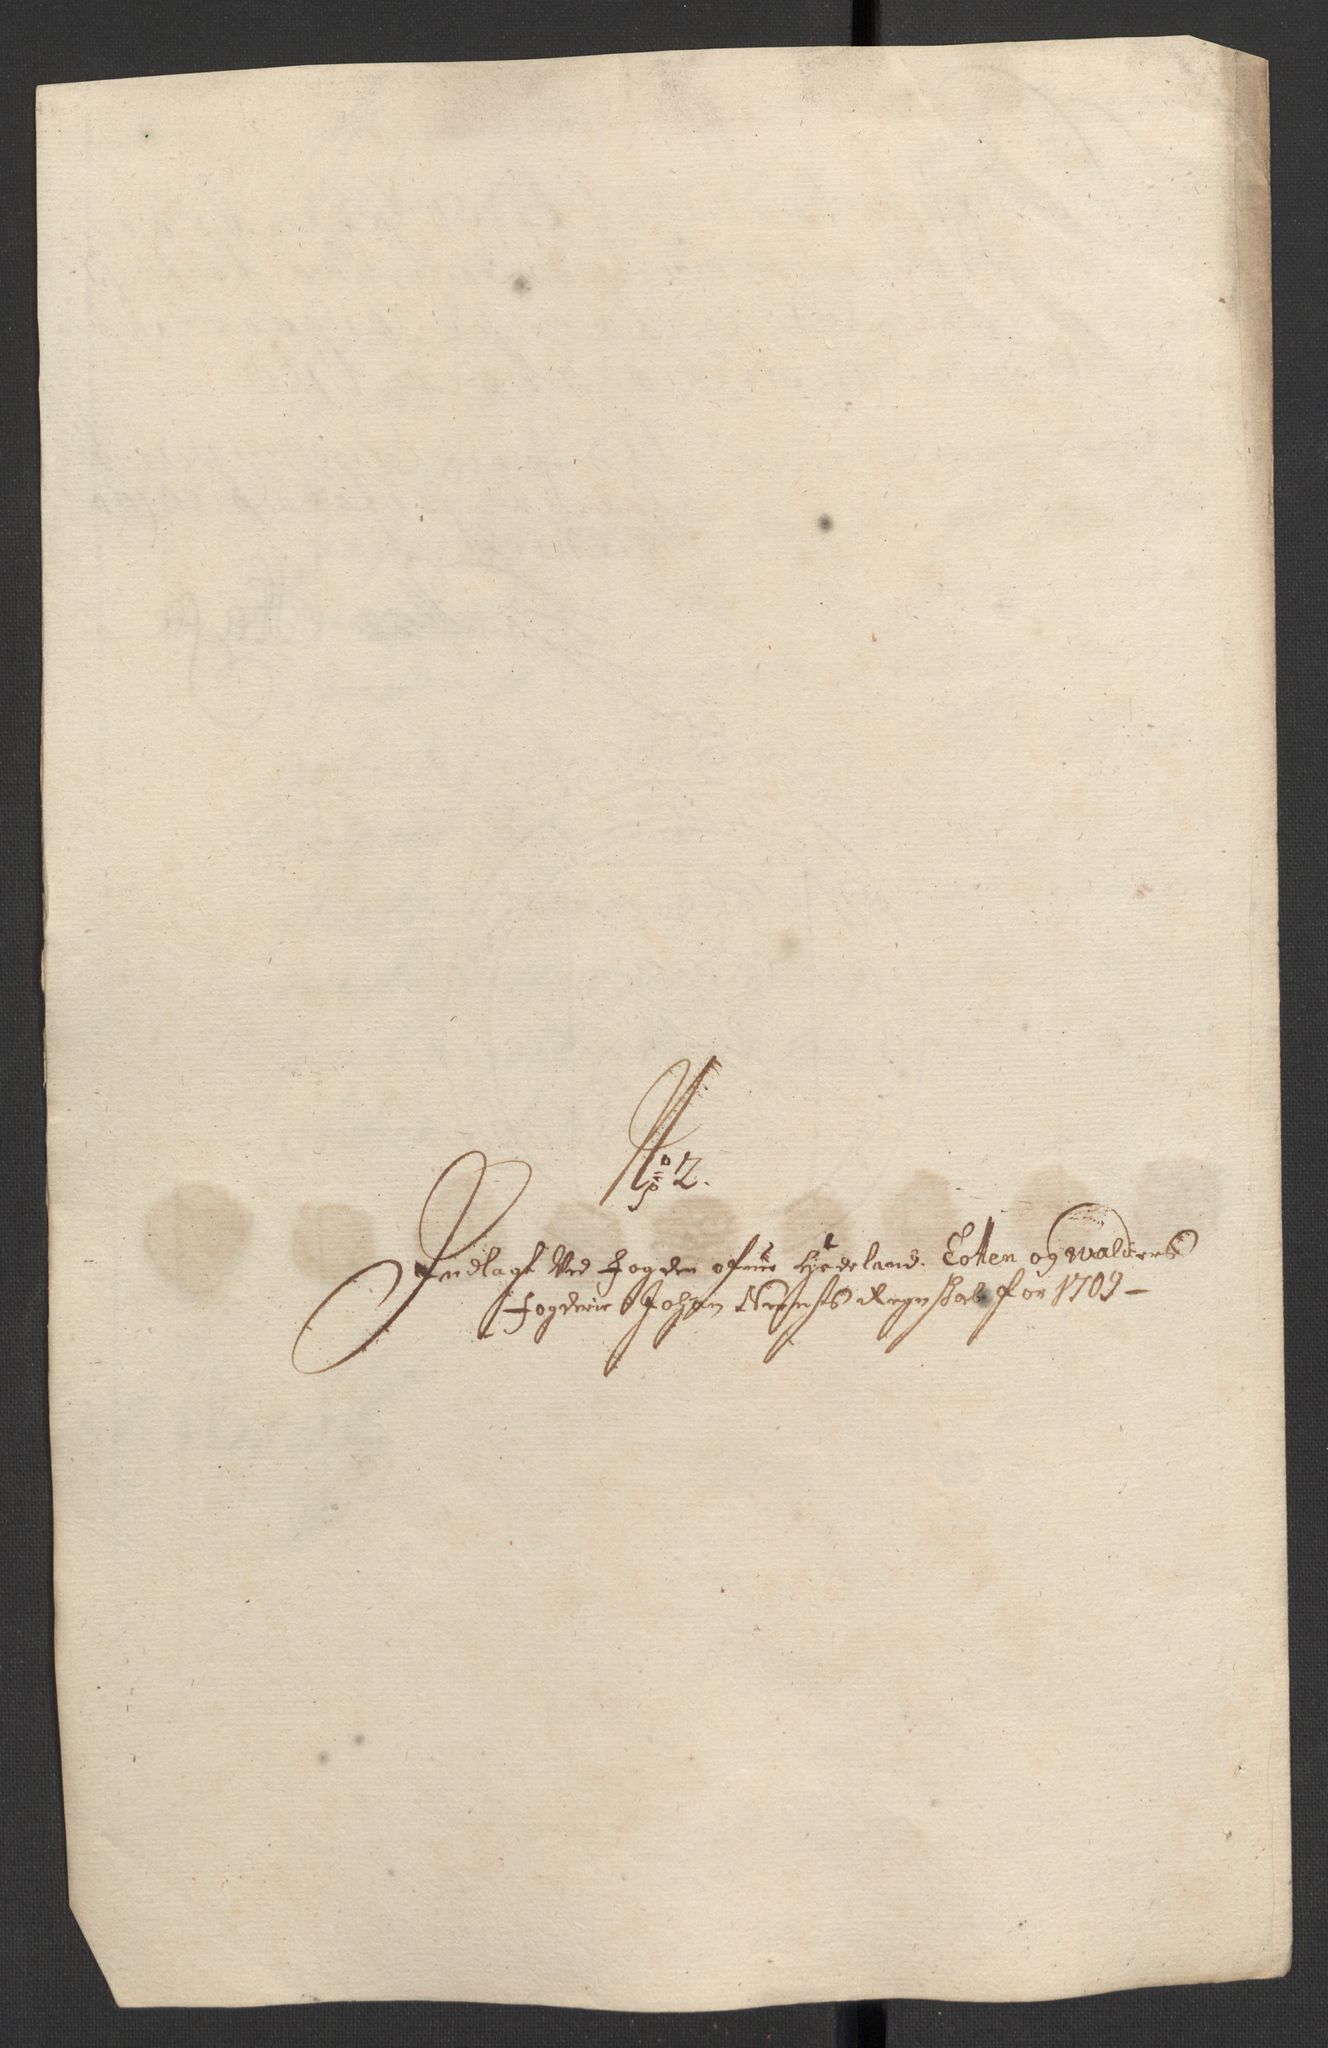 No 2.
Indlagt Ved fogden ofuer Hadeland. Totten og walders
fogderie Johan Regnskab for 1709 –